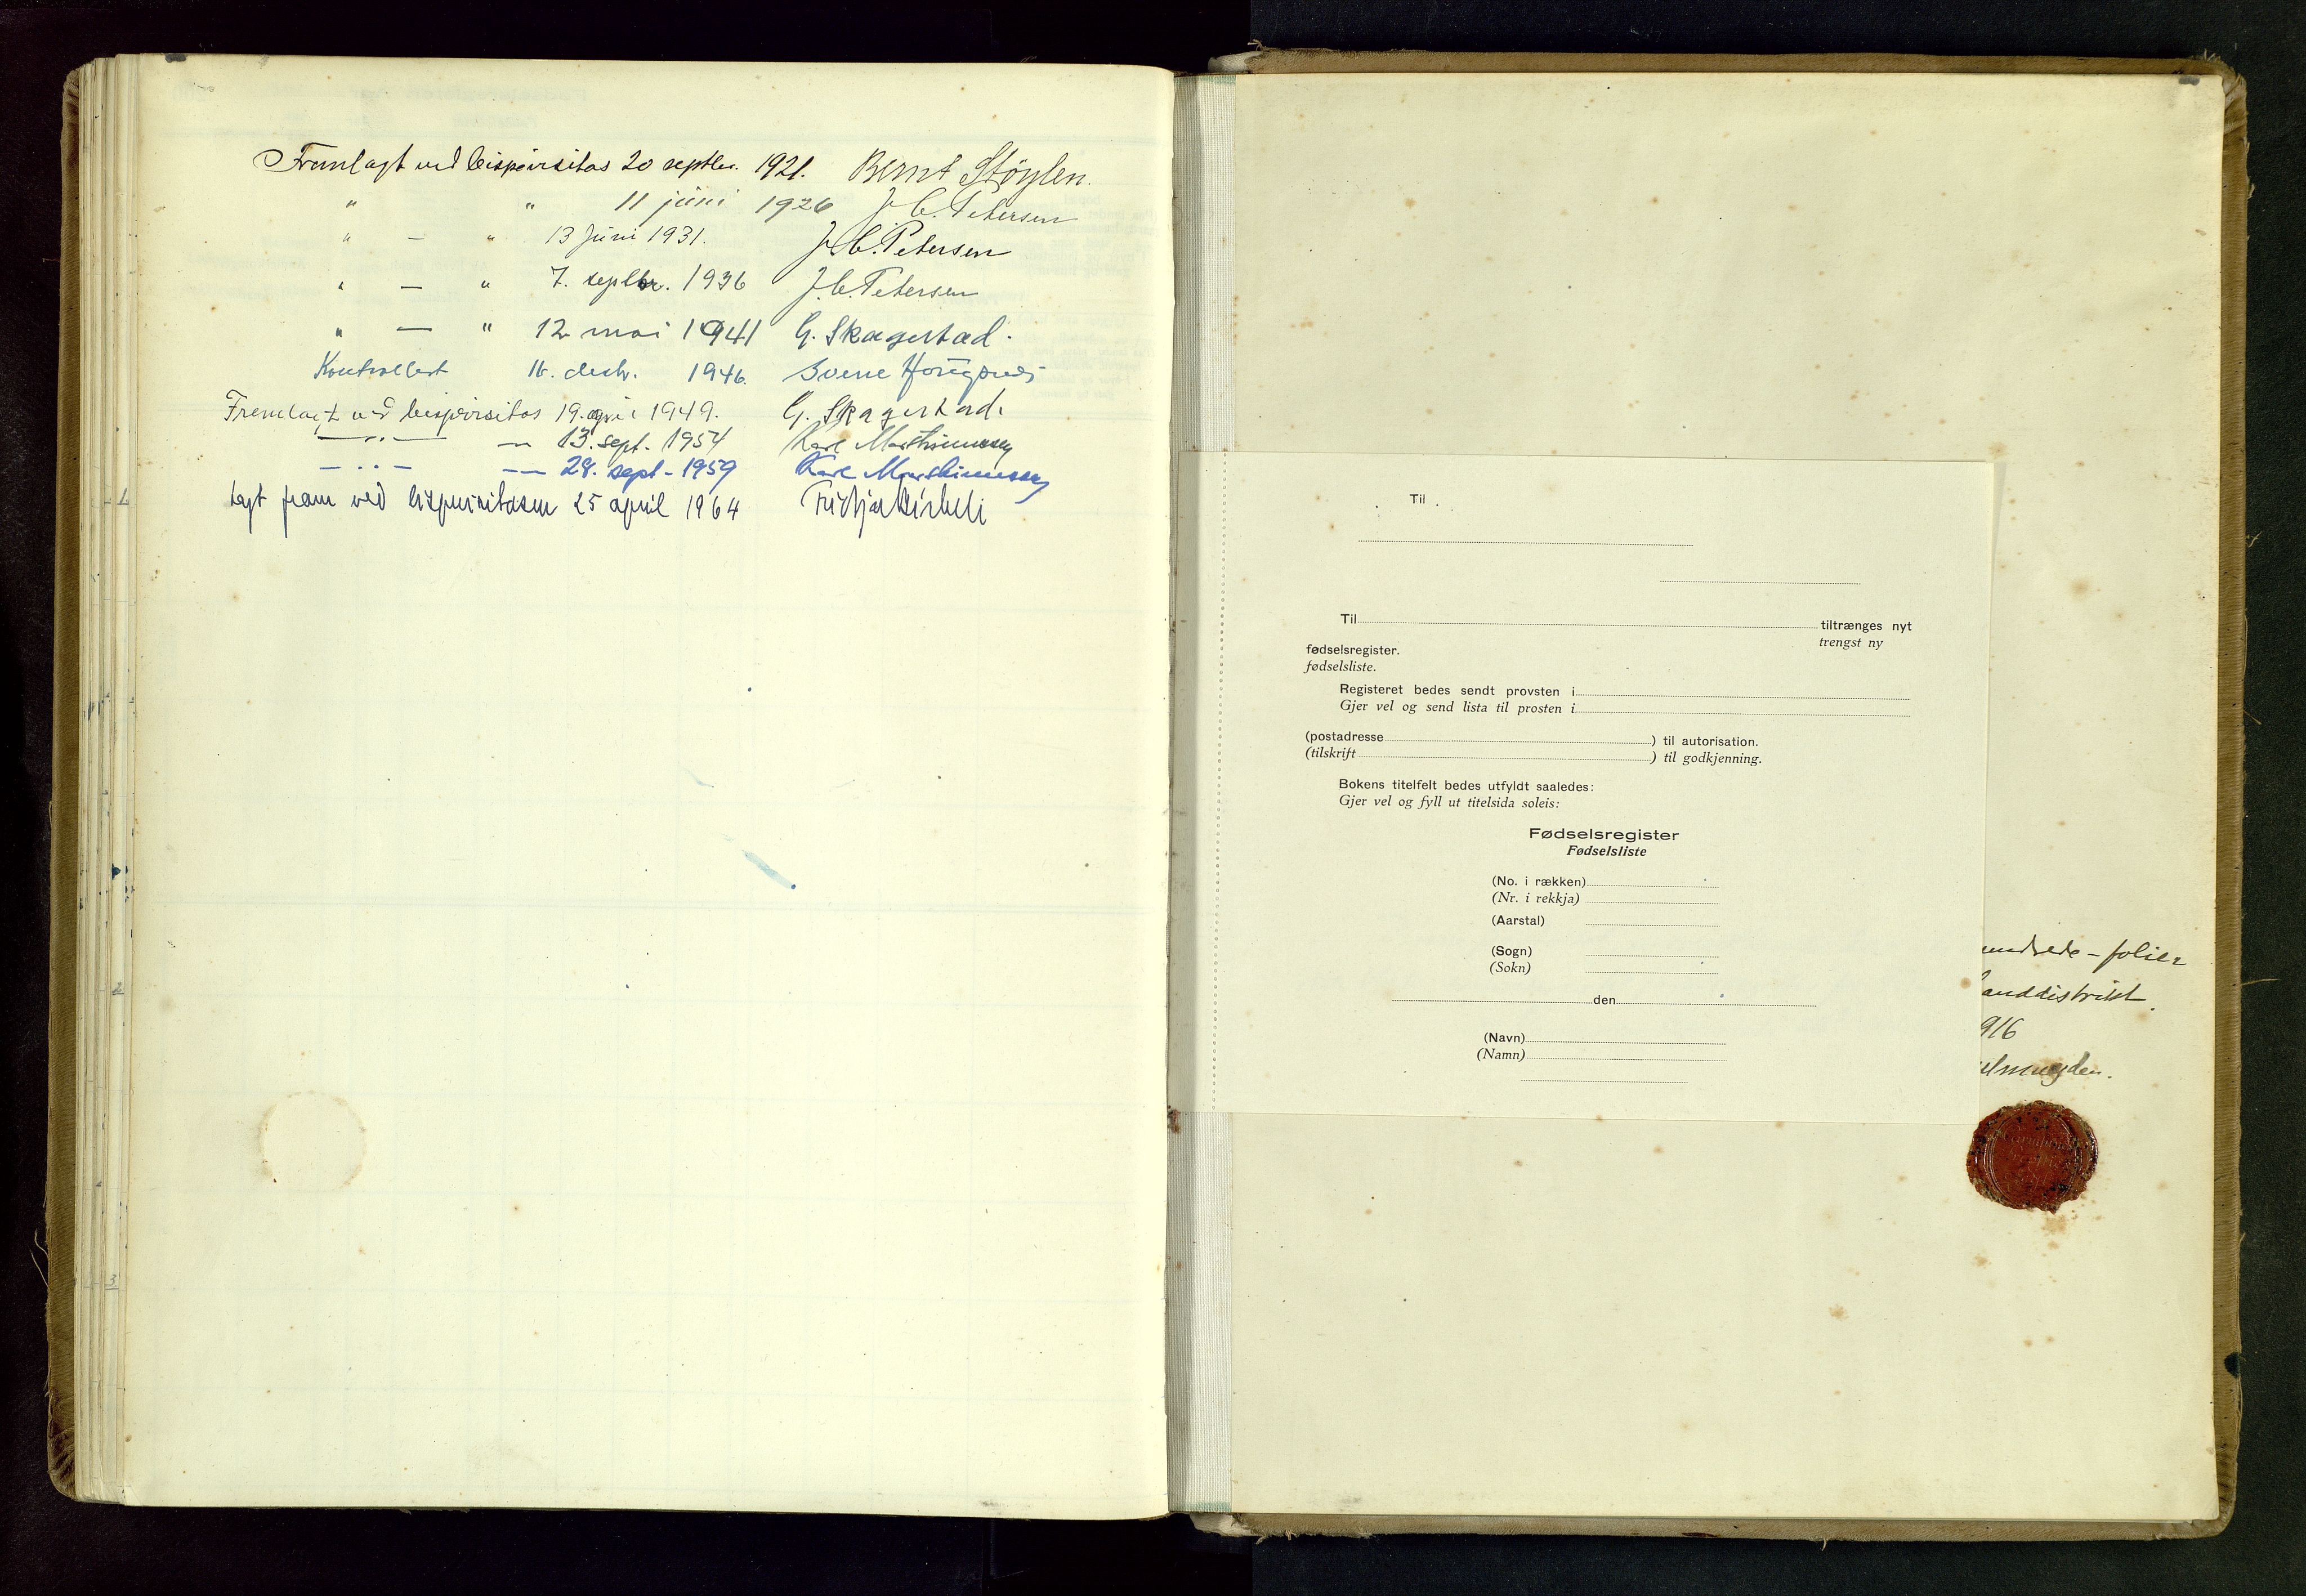 Fremlagt ved bispevisitas 20 septbr. 1921. Bernt Støylen.
" " 11 juni 1926 J. C. Petersen
" — " 13 juni 1931. J. C. Petersen
" — " 7. septbr. 1936 J. C. Petersen
" — " 12 mai 1941 G. Skagestad.
Kontrollert 16. desbr. 1946.
Fremlagt ved bispevisitas 19. april 1949. G. Skagestad.
— " — — 13. sept. 1954 Kare Marthinussen
— " — — 28. sept. 1959 Kare Marthinussen
Lagt fram ved bispevisitasen 25 april 1964 Fridtjov Birkeli
1
2
3
Til
Til tiltrænges nyt
trengst ny
fødselsregister.
fødselsliste.
Registeret bedes sendt provsten i
Gjer vel og send lista til prosten i
(postadresse ) til autorisation.
(tilskrift ) til godkjenning.
Bokens titelfelt bedes utfyldt saaledes:
Gjer vel og fyll ut titelsida soleis:
Fødselsregister
Fødselsliste
(No. i rækken)
(Nr. i rekkja)
(Aarstal)
(Sogn)
(Sokn)
den
(Navn)
(Namn)
undrede - folier
anddistrikt.
916